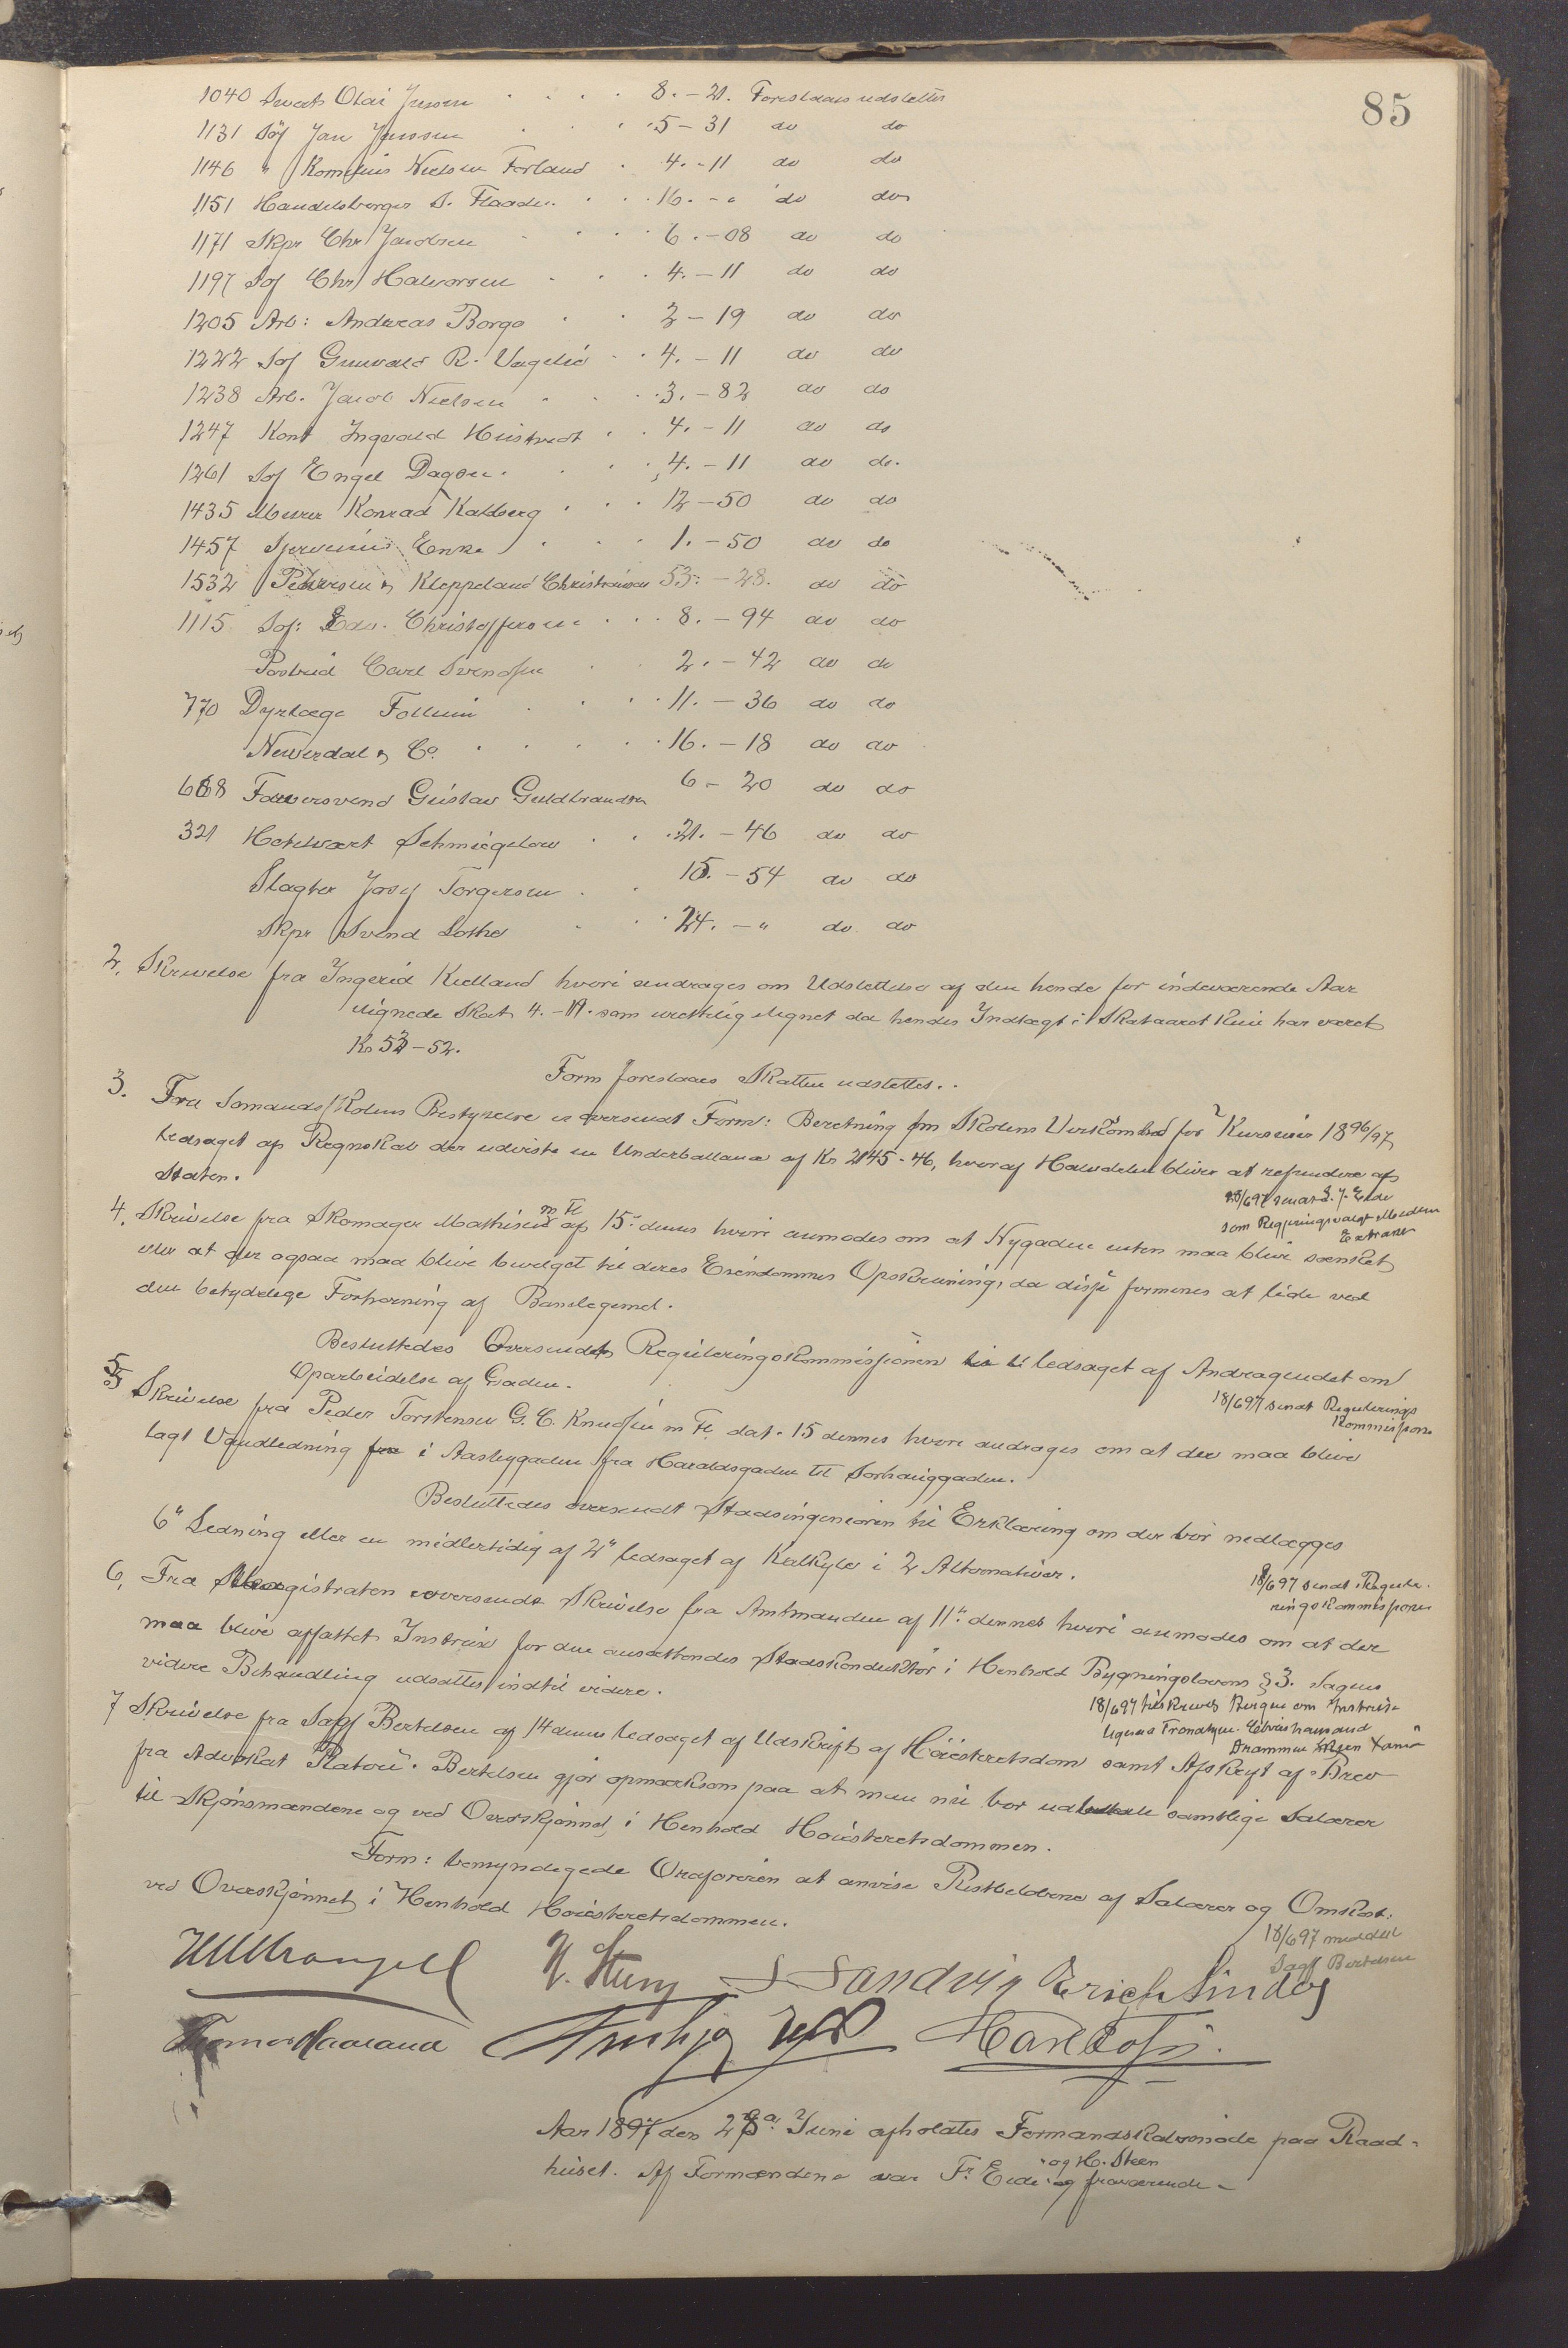 85
1040 Olai Jensen . . . . 8. - 21. Foreslaaes udslettet
1131 Søf Jan Janssen . . . 5 - 31 do do
1146 " Kornelius Nielsen Førland . 4. - 11 do do
1151 Handelsborger S. Flaaden . . . 16. - " do do
1171 Skpr Chr Jacobsen . . . 6. - 08 do do
1197 Søf Chr Halvorsen . . . 4. - 11 do do
1205 Arb: Andreas Borgø . . 2 - 19 do do
1222 Søf Gunvald R. . . 4. - 11 do do
1238 Arb. Jacob Nielsen . . . 3. - 82 do do
1247 Kont Ingvald . . 4. - 11 do do
1261 Søf Engel Dagsen . . . . 4. - 11 do do.
1435 Murer Konrad Kalberg . . . 12 - 50 do do
1457 Enke . . . 1. - 50 do do
1532 Pedersen & Kleppeland Christiansen 53. - 28. do do
1115 Søf: Edv. Christoffersen . . . 8. - 94 do do
Postbud Carl Svendsen . . 2. - 42 do do
770 Dyrlæge Follum . . . . 11. - 36 do do
Neverdal & Co. . . . . 16. - 18 do do
668 Farversvend Gustav Guldbrandsen 6 - 20 do do
321 Hotelvært Schmiegelow . . . 21. - 46 do do
Slagter Josef Torgersen . . 15. - 54 do do
Skpr Svend Lothe . . . 24. - " do do
2. Skrivelse fra Ingerid Kielland hvori andrages om Udslettelse af den hende for indeværende Aar
lignede Skat 4. - 19. som urettelig lignet da hendes Indtægt i Skataaret kun har været
Kr 53 - 52.
Form foreslaaes Skatten udslettet.
3. Fra Sømandsskolens Bestyrelse er oversendt Form: Beretning om Skolens Virksomhed for Kurserne 1896/97,
ledsaget af Regnskab der udviste en Underballance af Kr 2145-46, hvoraf Halvdelen bliver at refundere af
Staten.
18/697 sendt S. J. Eide
som Regjeringsvalgt Medlem
Extrakt
4. Skrivelse fra Skomager Mathisen m Fl af 15de dennes hvori anmodes om at Nygaden enten maa blive sænket
eller at der ogsaa maa blive bevilget til deres Eiendommes Opskruning, da disse formenes at lide ved
den betydelige Forhøining af Banelegemet.
Besluttedes Oversendt Reguleringskommissionen ledsaget af Andragendet om
Oparbeidelse af Gaden.
18/697 sendt Regulerings
Kommission
5 Skrivelse fra Peder Torstensen G. C. Knudsen m Fl. dat. 15 dennes hvori andrages om at der maa blive
lagt Vandledning i Aasbyggaden fra Haraldsgaden til Sørhauggaden.
Besluttedes oversendt Stadsingeniøren til Erklæring om der bør nedlægges
6" Ledning eller en midlertidig af 2" ledsaget af Kalkyle i 2 Alternativer.
18/697 sendt Regule-
ringskommissionen
6. Fra Magistraten oversendt Skrivelse fra Amtmanden af 11te dennes hvori anmodes om at der
maa blive affattet Instrux for den ansættendes Stadskonduktør i Henhold Bygningslovens § 3. Sagens
videre Behandling udsattes indtil videre.
18/697 tilskrevet Bergen om Instruxe
ligesaa Trondhjem. Christianssand
Drammen Skien
7 Skrivelse fra Sagf Bertelsen af 14 dennes ledsaget af Udskrift af Høiesteretsdom samt Afskrift af Brev
fra Advokat Platou. Bertelsen gjør opmærksom paa at man nu bør udbetale samtlige Salærer
til Skjønsmændene og ved Overskjønnet i Henhold Høiesteretsdommen.
Form: bemyndigede Ordføreren at anvise Restbeløbene af Salærer og Omkost.
ved Overskjønnet i Henhold Høiesteretsdommen.
18/697 meddelt
Sagf Bertelsen
H. Steen S Sandvig Erich Lindøe
Thomas Haaland
Aar 1897 den 28de Juni afholdtes Formandskabsmøde paa Raad-
huset. Af Formændene var Fr. Eide og H. Steen fraværende -